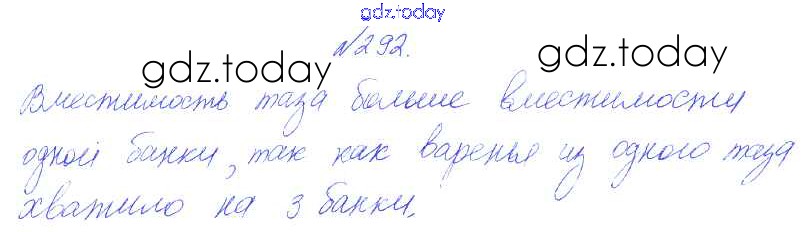 gdz.today
№292.
gdz.today gdz.today
Вместимость таза больше вместимости
одной банки, так как варенья из одного таза
хватило на 3 банки.
gdz.today gdz.today